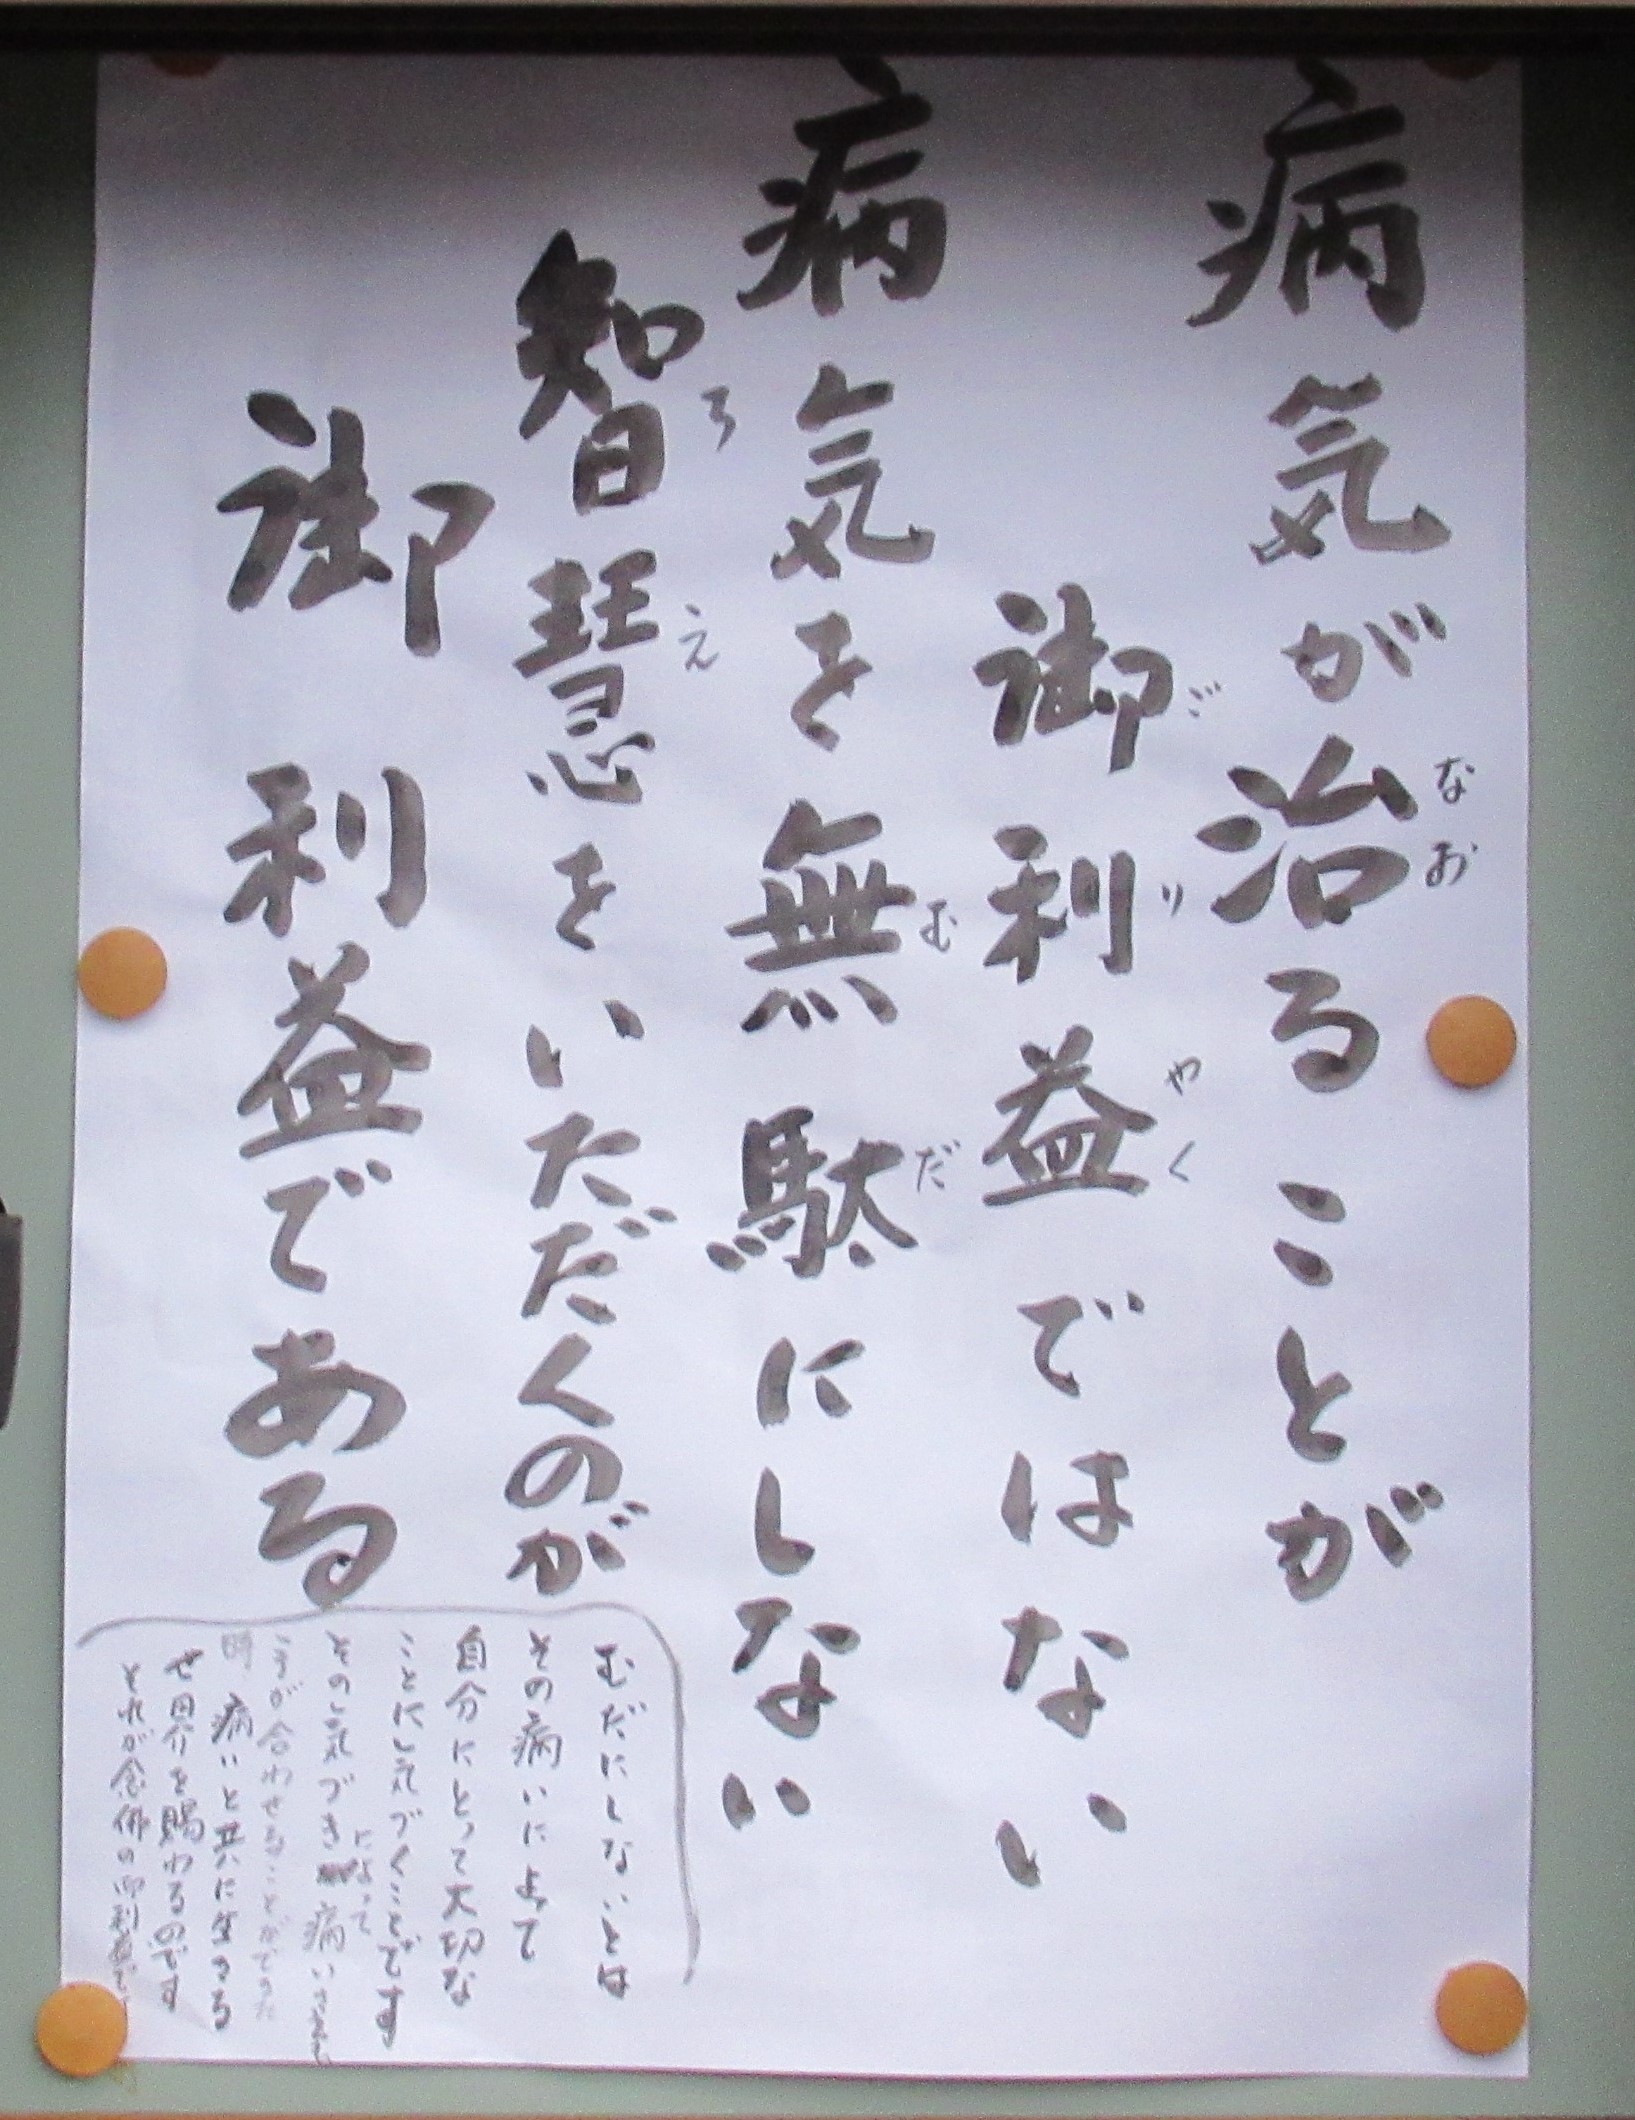 病気が治ることが
なお
御利益ではない
ごりやく
病気を無駄にしない
むだ
智慧をいただくのが
ちえ
御利益である
むだにしないとは
その病いによって
自分にとって大切な
ことに気づくことです
その気づきによって病いに
合わせることができた
時、病いと共に生きる
世界を賜わるのです
それが念佛の御利益